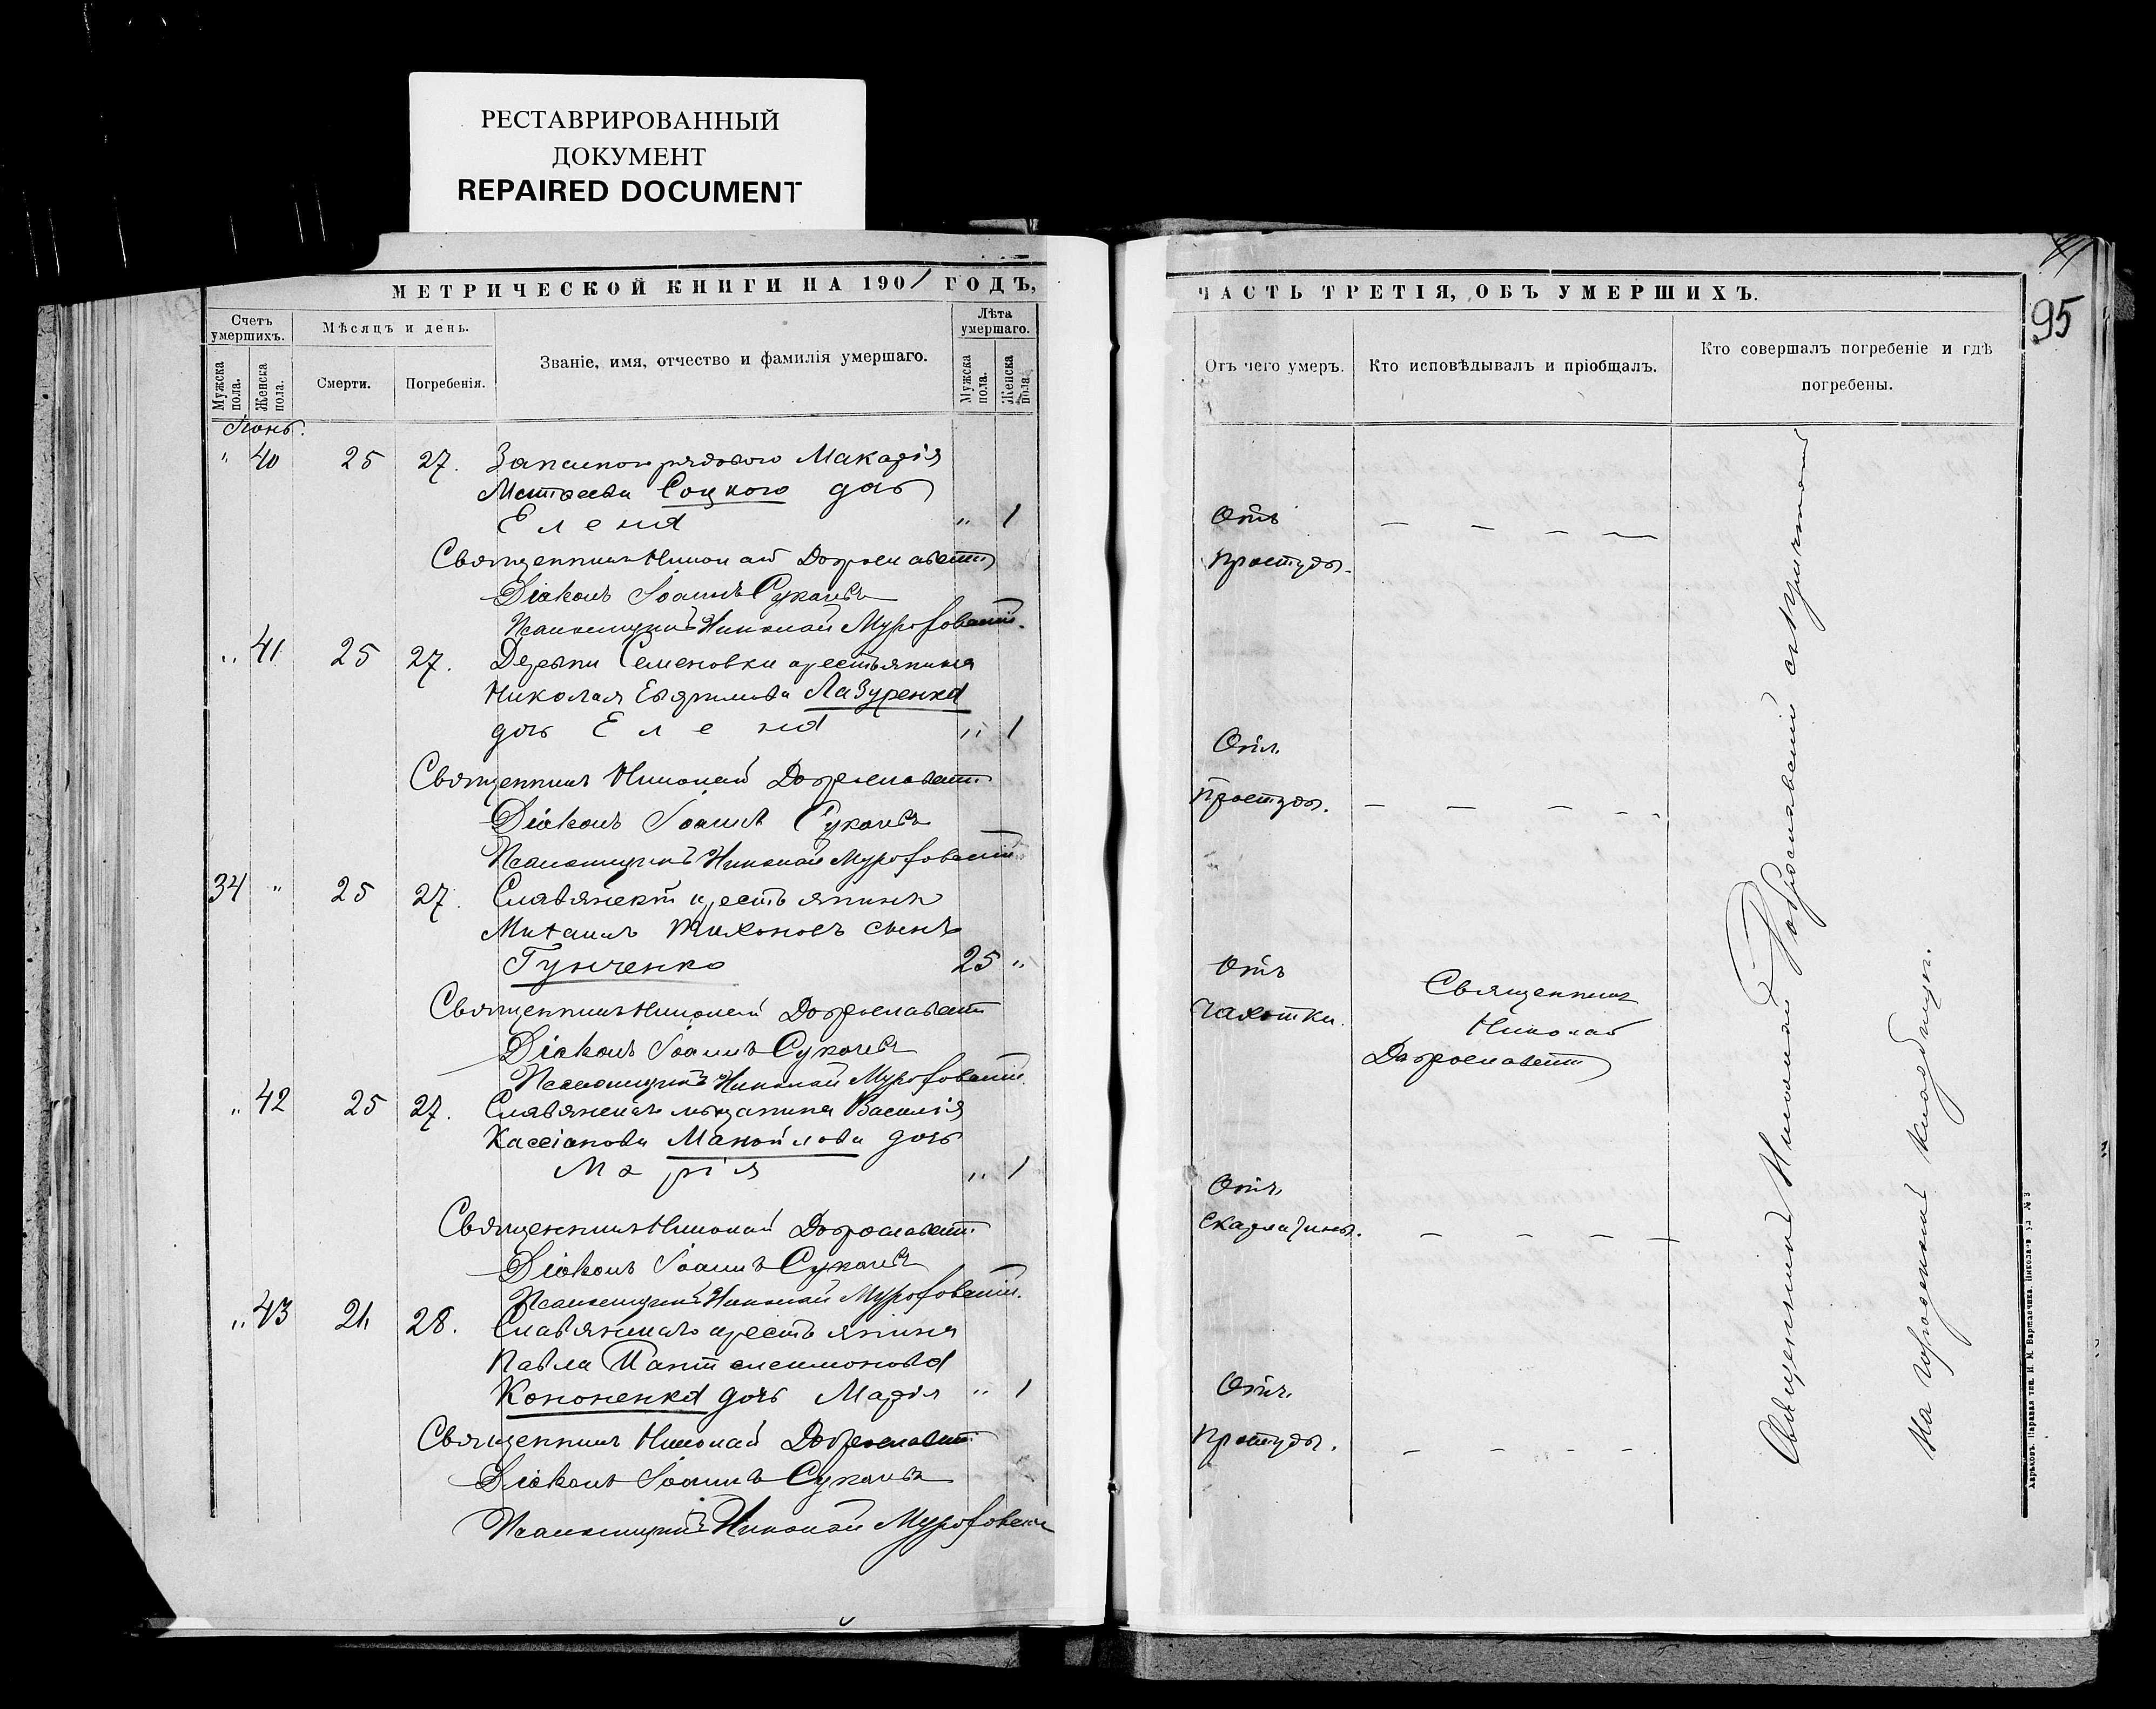 РЕСТАВРИРОВАННЫЙ
ДОКУМЕНТ
REPAIRED DOCUMENT
МЕТРИЧЕСКОЙ КНИГИ НА 1901 ГОДЪ,
Счетъ умершихъ.
Мужска пола.
Женска пола.
Мѣсяцъ и день.
Смерти.
Погребенія.
Званіе, имя, отчество и фамилія умершаго.
Лѣта умершаго.
Мужска пола.
Женска пола.
Іюнь.
" 40 25 27. Запасного рядового Макарія
Матвеева Соцкого дочь
Елена " 1
Священникъ Николай Доброславскій
Діаконъ Іоаннъ
Псаломщикъ Николай
" 41 25 27. Деревни Семеновки крестьянина
Николая Евфимова Лазуренка
дочь Елена " 1
Священникъ Николай Доброславскій
Діаконъ Іоаннъ
Псаломщикъ Николай
34 " 25 27. Славянскій крестьянинъ
Михаилъ Тихоновъ сынъ
Гунченко 25 "
Священникъ Николай Доброславскій
Діаконъ Іоаннъ
Псаломщикъ Николай
" 42 25 27. Славянскаго мѣщанина Василія
Кассіанова Манойлова дочь
Марія " 1
Священникъ Николай Доброславскій
Діаконъ Іоаннъ
Псаломщикъ Николай
" 43 28. Славянскаго крестьянина
Павла Пантелеимонова
Кононенка дочь Марія " 1
Священникъ Николай Доброславскій
Діаконъ Іоаннъ
Псаломщикъ Николай
ЧАСТЬ ТРЕТІЯ, ОБЪ УМЕРШИХЪ.
95
Отъ чего умеръ.
Кто исповѣдывалъ и пріобщалъ.
Кто совершалъ погребеніе и гдѣ
погребены.
Отъ
простуды.
Отъ
простуды.
Отъ
чахотки.
Священникъ
Николай
Доброславскій
Отъ
скарлатины.
Отъ
простуды.
Священникъ Николай Доброславскій съ причтомъ
на городскомъ кладбищѣ.
Харьковъ. Паровая тип. И. М. Варшавчика